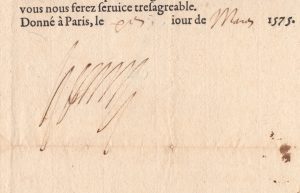 vous nous ferez ſeruice treſagreable.
Donné à Paris, le iour de Mars 1575.